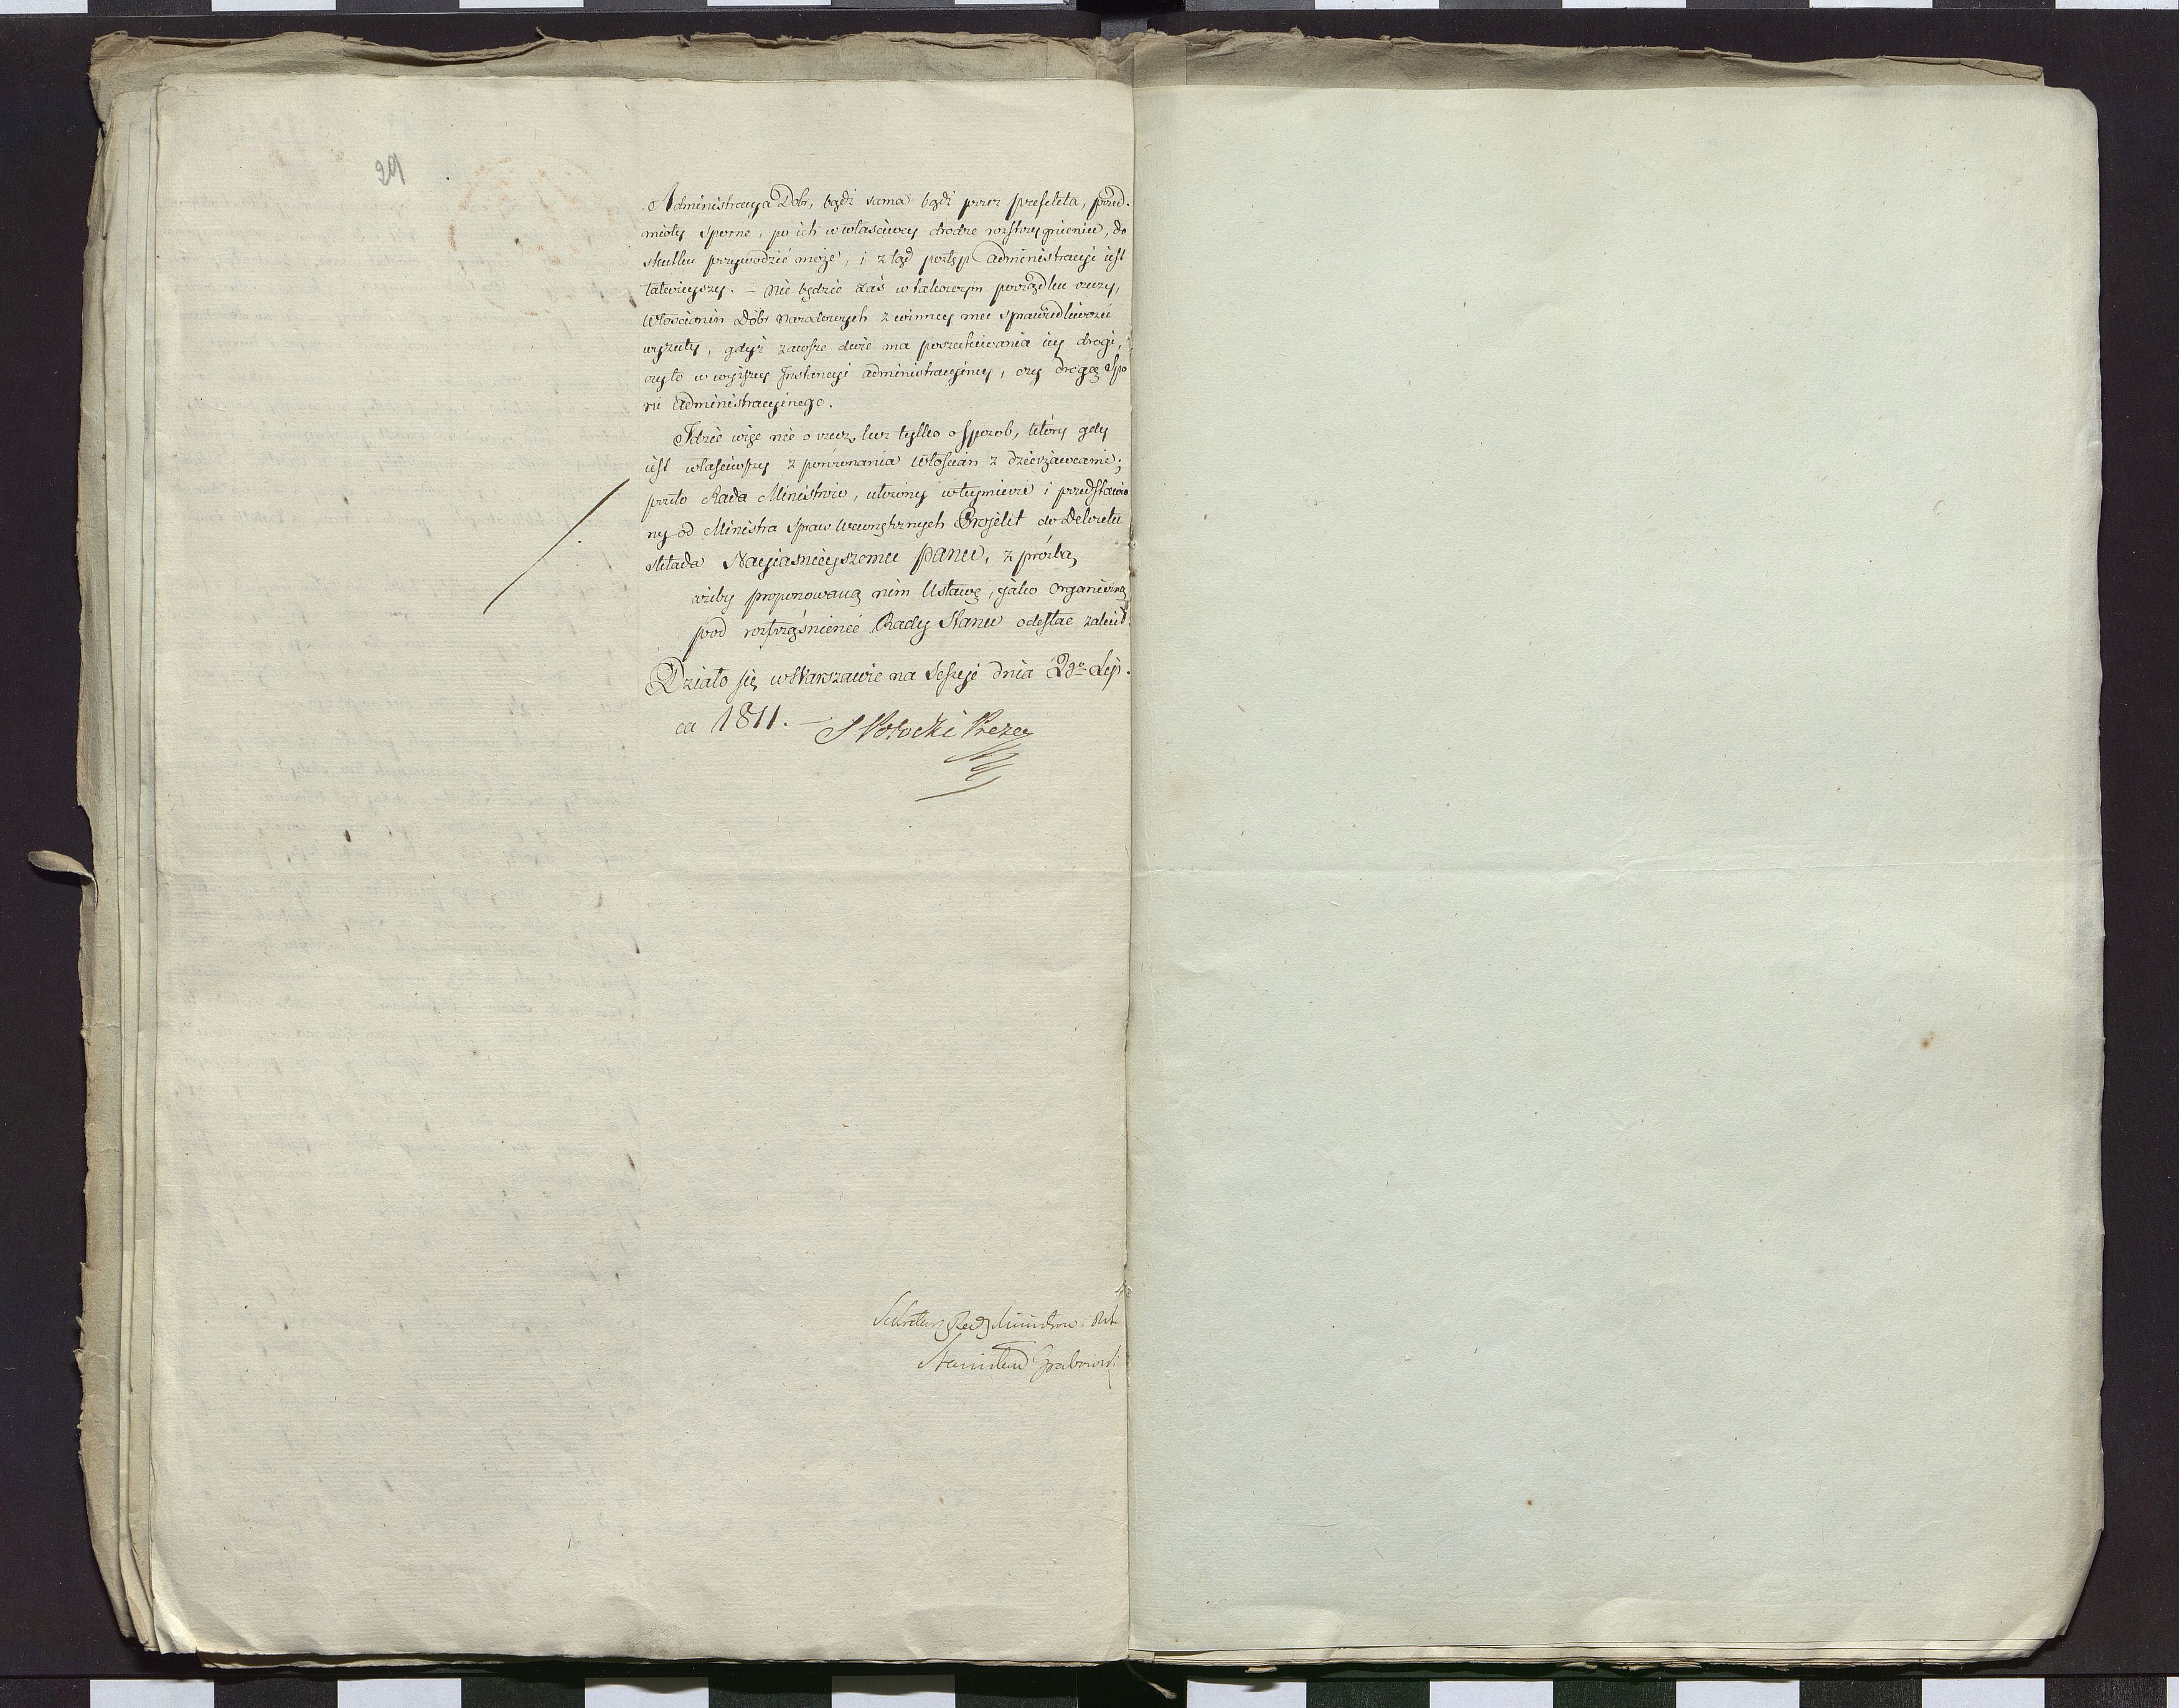 29
Administracya Dobr, bądź sama bądź przez prefekta, przed-
mioty sporne, po ich w właściwey drodze rozstrzygnieniu, do
skutku przywodzić może, i z tąd postęp administracyi iest
łatwieyszy. — Nie będzie zaś w takowym porządku rzeczy,
Włościanin Dóbr Narodowych z winney mu sprawiedliwości
wyzuty, gdyż zawsze dwie ma poszukiwania iey drogi,
czyto w wyższey Instancyi administracyiney, czy drogą Spo
ru administracyinego.
Idzie więc nie o rzecz, lecz tylko o sposob, który gdy
iest właściwszy z porównania Włościan z dzierżawcami;
przeto Rada Ministrów, ułożony w tey mierze i przedstawio
ny od Ministra Spraw Wewnętrznych Projekt do Dekretu
składa Nayiaśnieyszemu Panu, z prośbą,
ażeby proponowaną nim Ustawę, jako organiczną
pod roztrząśnienie Rady Stanu odesłać zalecił.
Działo się w Warszawie na Sessyi dnia 2go Lip-
ca 1811. — S Potocki Prezes
Sekretarz Rady Ministrów i Stanu
Stanisław Grabowski